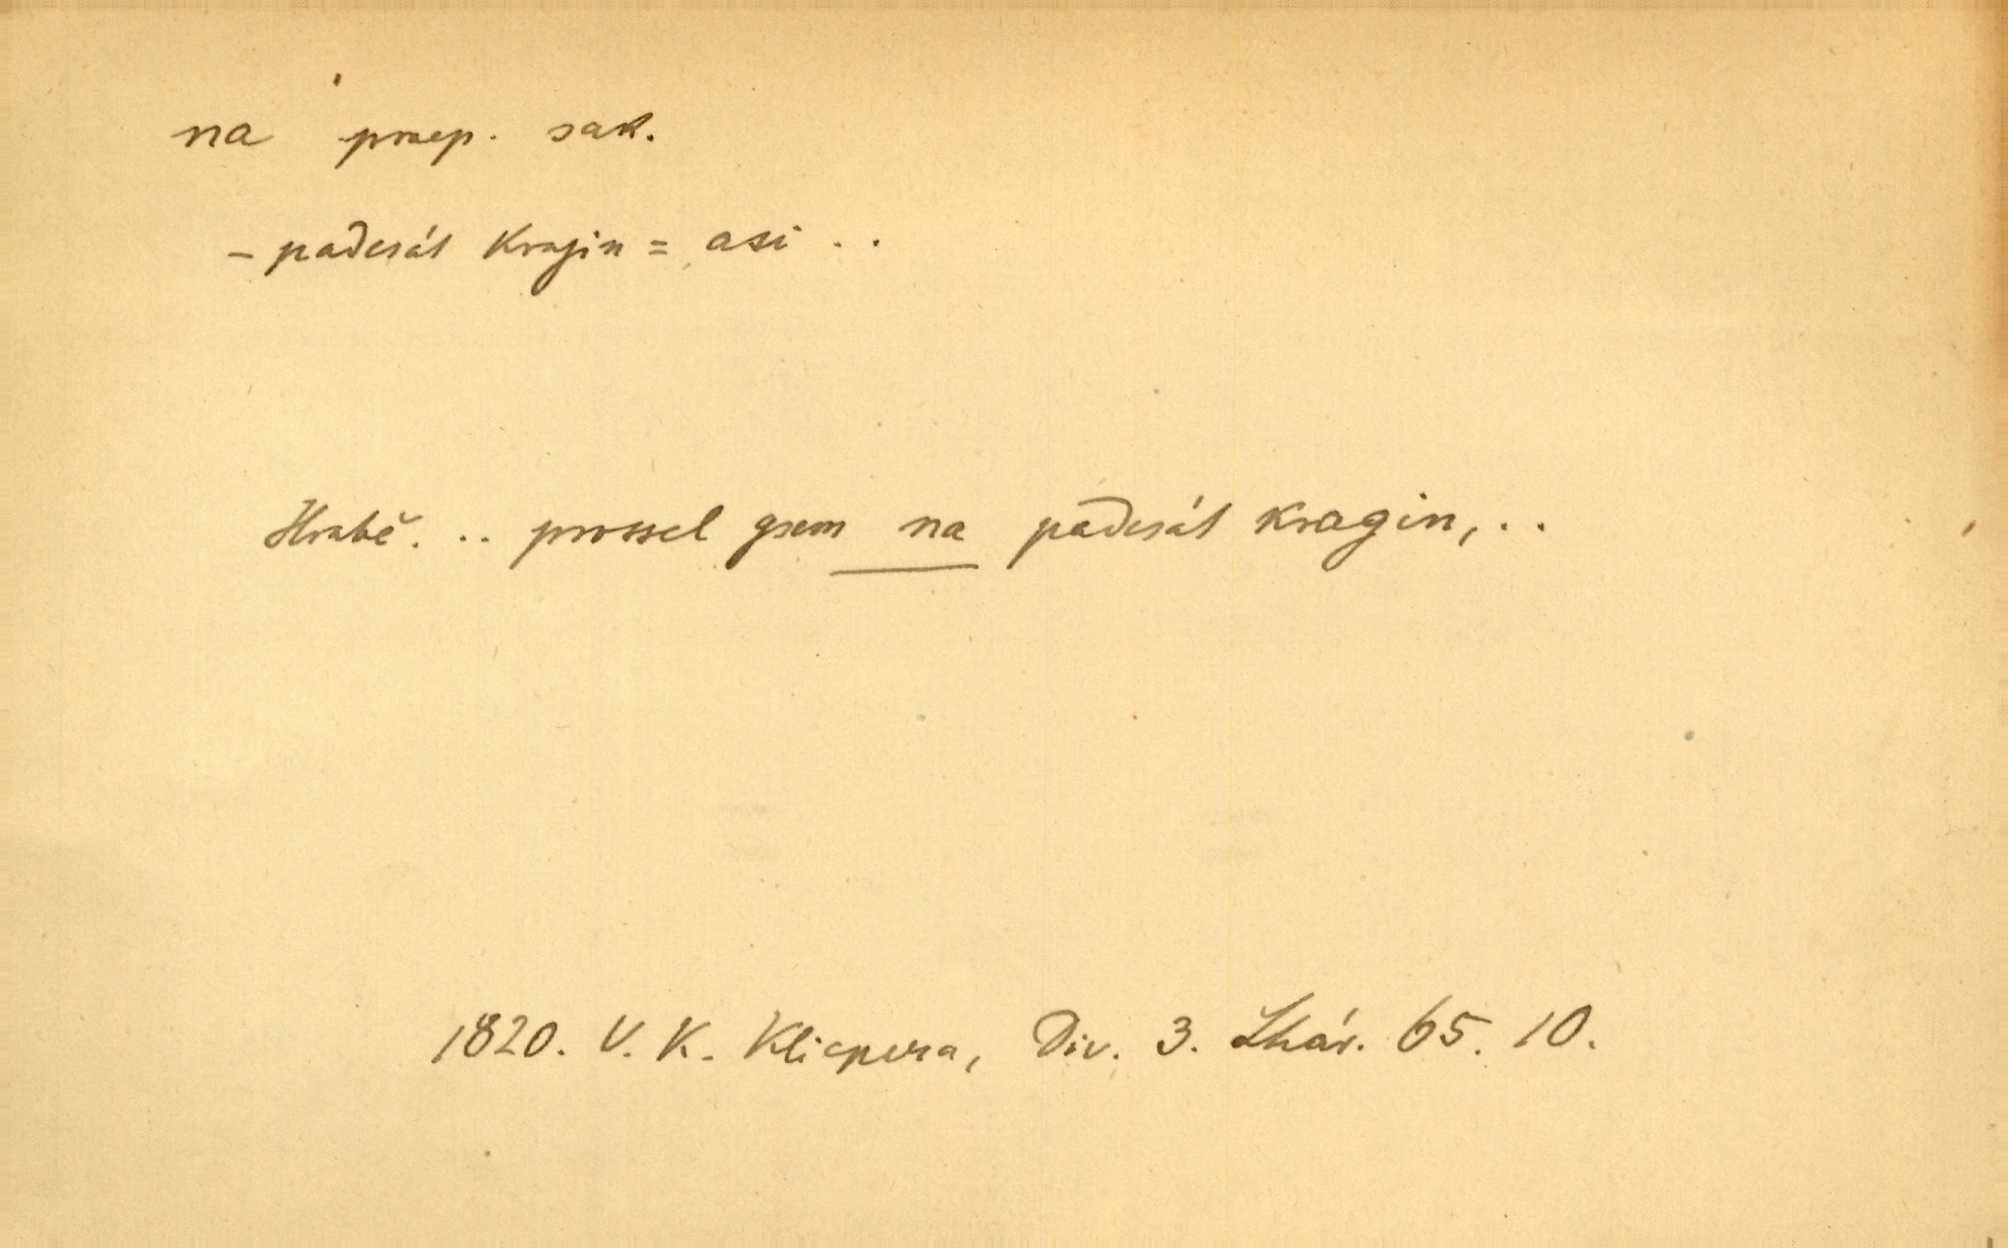 na praep. s ak.
– padesát krajin = asi ..
Hrabě. .. prossel gsem na padesát kragin, ..
1820. V. K. Klicpera, Div. 3. Lhář. 65. 10.